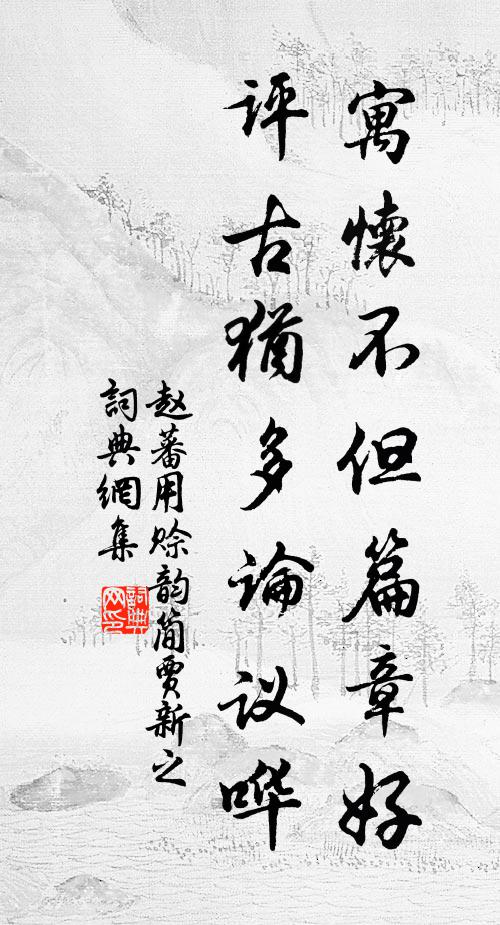 寓懷不但篇章好
评古猶多論议哗
赵蕃用赊韵简贾新之
詞典網集
詞典网印